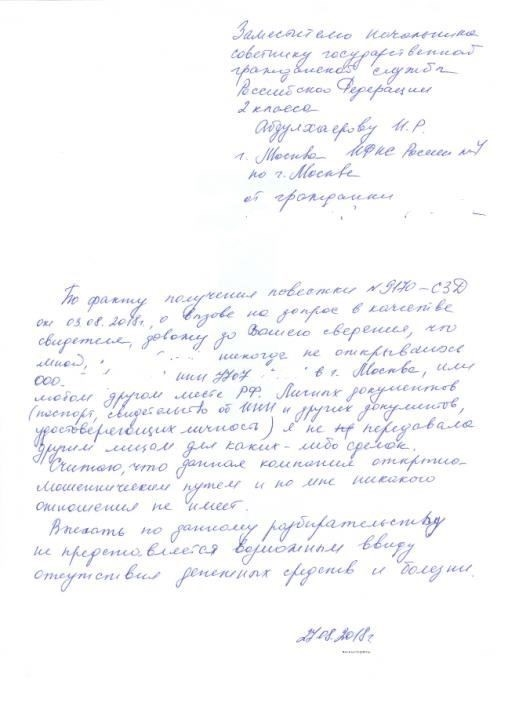 Заместителю начальника
советнику государственной
гражданской службы
Российской Федерации
2 класса
Абдулхаерову И.Р.
г. Москва ИФНС России №7
по г. Москве
от гражданки
По факту получения повестки №9170-СЗД
от 03.08.2018г, о вызове на допрос в качестве
свидетеля, довожу до Вашего сведения, что
мной, никогда не открывалось
ООО. ИНН 7707 в г. Москва, или
любом другом месте РФ. Личных документов
(паспорт, свидетельство об ИНН и других документов,
удостоверяющих личность) я не передавала
другим лицам для каких-либо сделок.
Считаю, что данная компания открыта
мошенническим путем и ко мне никакого
отношения не имеет.
Выехать по данному разбирательству
не представляется возможным ввиду
отсутствия денежных средств и болезни.
27.08.2018г